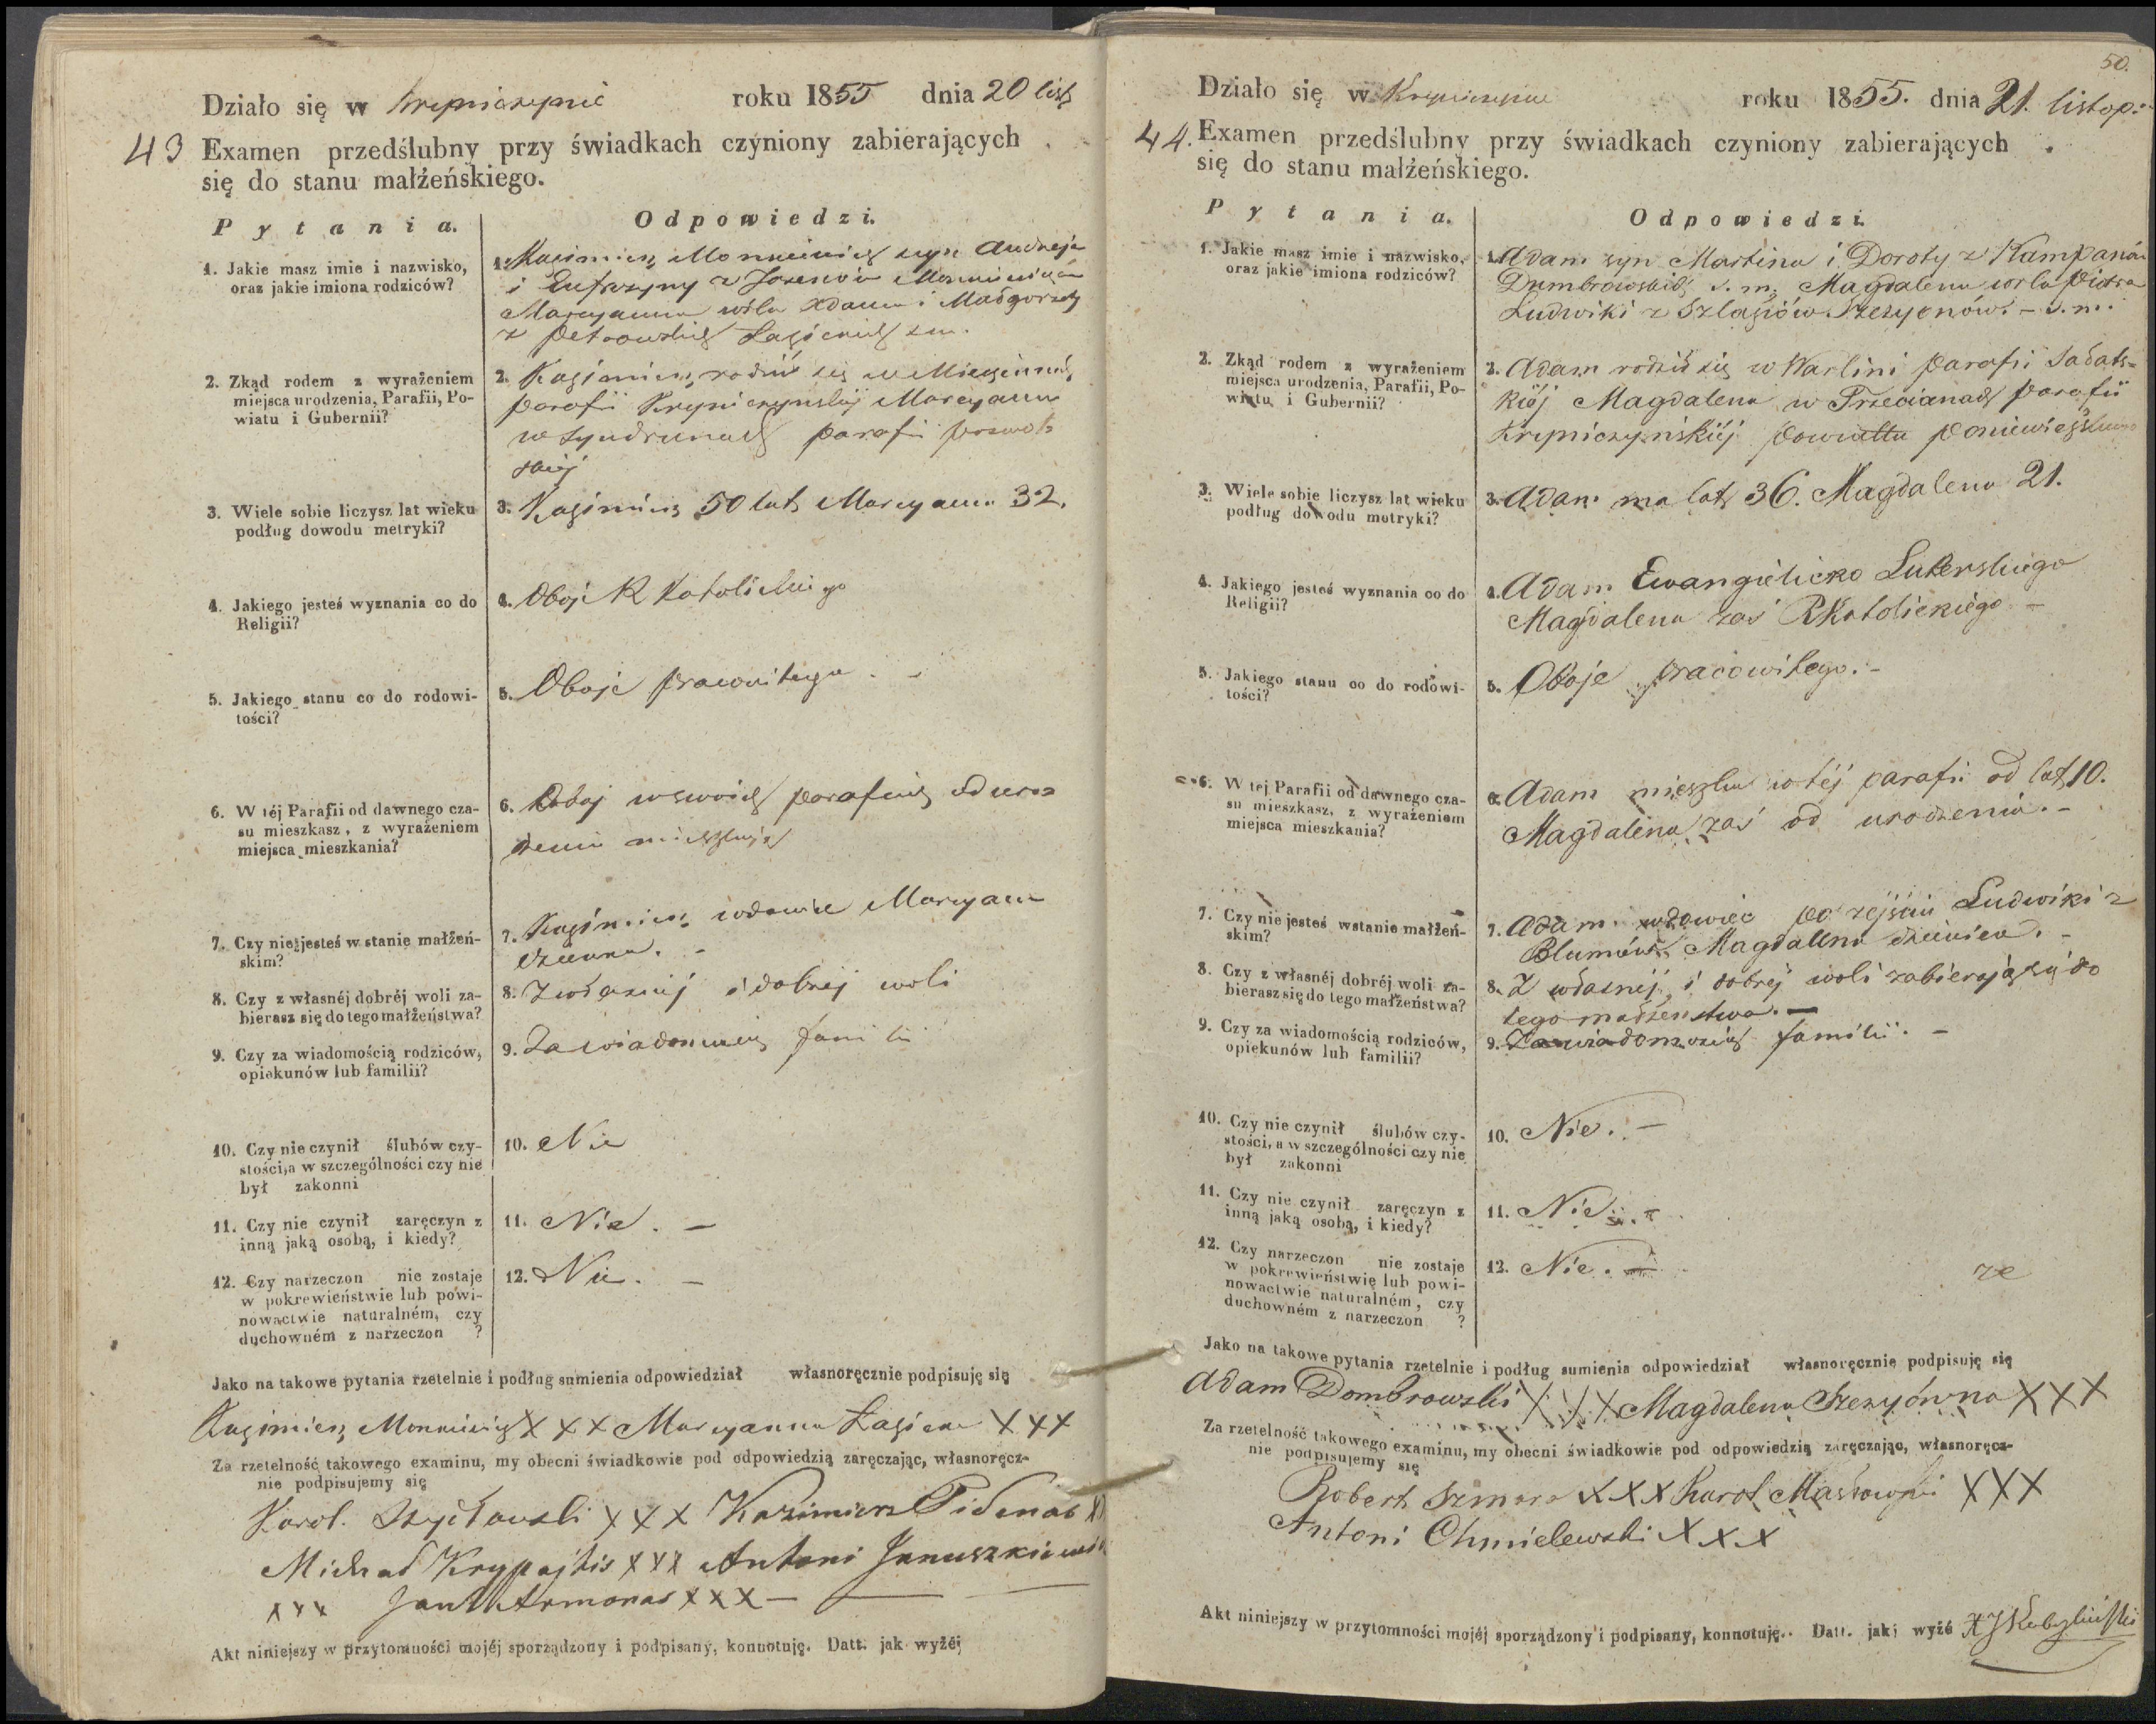 Działo się w Krypniczynie roku 1855 dnia 20 list
43 Examen przedślubny przy świadkach czyniony zabierających
się do stanu małżeńskiego.
Pytania. Odpowiedzi.
1. Jakie masz imie i nazwisko,
oraz jakie imiona rodziców?
1. Kazimierz syn Andrzeja
i Eufrozyny z
Maryanna córka Adama i Małgorzaty
z
2. Zkąd rodem z wyrażeniem
miejsca urodzenia, Parafii, Po-
wiatu i Gubernii?
2. Kazimierz rodził się w
parafii Krypniczynskiéj Maryanna
w parafii
skiéj
3. Wiele sobie liczysz lat wieku
podług dowodu metryki?
3. Kazimierz 50 lat Maryanna 32.
4. Jakiego jesteś wyznania co do
Religii?
4. Oboje R Katolickiego
5. Jakiego stanu co do rodowi-
tości?
5. Oboje pracowitego . -
6. W téj Parafii od dawnego cza-
su mieszkasz, z wyrażeniem
miejsca mieszkania?
6. w swoich parafiach od uro
dzenia mieszkają
7. Czy nie jesteś w stanie małżeń-
skim?
7. Kazimierz wdowiec Maryanna
.-
8. Czy z własnéj dobréj woli za-
bierasz się do tego małżeństwa?
8. Z własnéj i dobréj woli
9. Czy za wiadomością rodziców,
opiekunów lub familii?
9. Za wiadomością familii
10. Czy nie czynił ślubów czy-
stości, a w szczególności czy nie
był zakonni
10. Nie
11. Czy nie czynił zaręczyn z
inną jaką osobą, i kiedy?
11. Nie. -
12. Czy narzeczon nie zostaje
w pokrewieństwie lub powi-
nowactwie naturalném, czy
duchowném z narzeczon ?
12. Nie. -
Jako na takowe pytania rzetelnie i podług sumienia odpowiedział własnoręcznie podpisuję się
Kazimierz X X X Maryanna X X X
Za rzetelność takowego examinu, my obecni świadkowie pod odpowiedzią zaręczając, własnoręcz-
nie podpisujemy się
Karol X X X Kazimierz
Michał Krypajtis X X X Antoni Januszkiewi
X X X Jan Armonas X X X -
Akt niniejszy w przytomności mojéj sporządzony i podpisany, konnotuję. Datt. jak wyżéj
50.
Działo się w Krypniczynie roku 1855. dnia 21. listop:
44. Examen przedślubny przy świadkach czyniony zabierających
się do stanu małżeńskiego.
Pytania. Odpowiedzi.
1. Jakie masz imie i nazwisko,
oraz jakie imiona rodziców?
1. Adam syn Martina i Doroty z
Dumbrowskich s. m. Magdalena córka Piotra
Ludwiki z - s. m.
2. Zkąd rodem z wyrażeniem
miejsca urodzenia, Parafii, Po-
wiatu i Gubernii?
2. Adam rodził się w Warlini parafii Sałats-
kiéj Magdalena w Trzecianach parafii
Krypniczyńskiéj powiattu
3. Wiele sobie liczysz lat wieku
podług dowodu metryki?
3. Adam ma lat 36. Magdalena 21.
4. Jakiego jesteś wyznania co do
Religii?
4. Adam Ewangielicko Luterskiego
Magdalena zaś RKatolickiégo -
5. Jakiego stanu co do rodowi-
tości?
5. Oboje pracowitego. -
6. W tej Parafii od dawnego cza-
su mieszkasz, z wyrażeniem
miejsca mieszkania?
6. Adam mieszka w téj parafii od lat 10.
Magdalena zaś od urodzenia. -
7. Czy nie jesteś wstanie małżeń-
skim?
7. Adam wdowiec po zejściu Ludwiki z
Blumów Magdalena . -
8. Czy z własnéj dobréj woli za-
bierasz się do tego małżeństwa?
8. Z własnéj i dobréj woli zabierają się do
tego małżenstwa. -
9. Czy za wiadomością rodziców,
opiekunów lub familii?
9. Za wiadomością familii. -
10. Czy nie czynił ślubów czy-
stości, a w szczególności czy nie
był zakonni
10. Nie. -
11. Czy nie czynił zaręczyn z
inną jaką osobą, i kiedy?
11. Nie. -
12. Czy narzeczon nie zostaje
w pokrewieństwie lub powi-
nowactwie naturalném, czy
duchowném z narzeczon ?
12. Nie. -
Jako na takowe pytania rzetelnie i podług sumienia odpowiedział własnoręcznie podpisuję się
Adam Dombrowski X X X Magdalena X X X
Za rzetelność takowego examinu, my obecni świadkowie pod odpowiedzią zaręczając, własnoręcz-
nie podpisujemy się
Robert X X X Karol X X X
Antoni Chmielewski X X X
Akt niniejszy w przytomności mojéj sporządzony i podpisany, konnotuję. Datt. jak wyżé